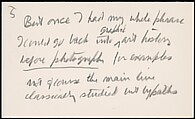 3
But once I had my whole phrase
I could go back into past history
graphic
before photography for examples
not of course the main line
classically studied but bypaths